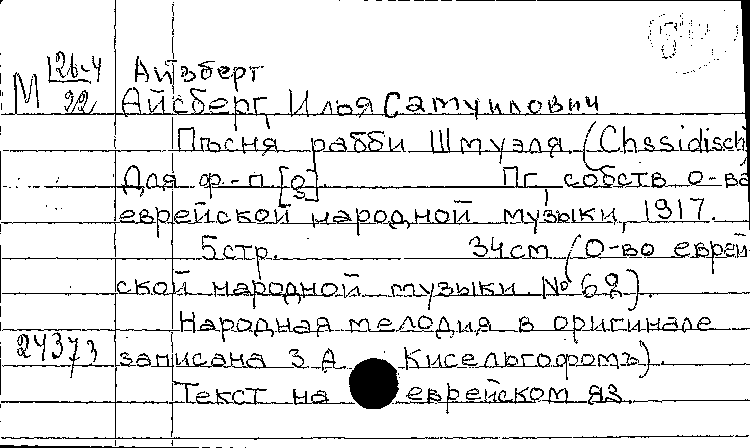 М 126-4
22
Айзберг
Айсберг, Илья Самуилович
Пѣсня рабби Шмуэля (Chssidisch)
Для ф-п [о]. Пг, собств о-ва
еврейской народной музыки, 1917.
5 стр. 34 см (О-во еврей
ской народной музыки № 62).
Народная мелодия в оригинале
24373 записана З А Кисельгофомъ).
Текст на еврейском яз.